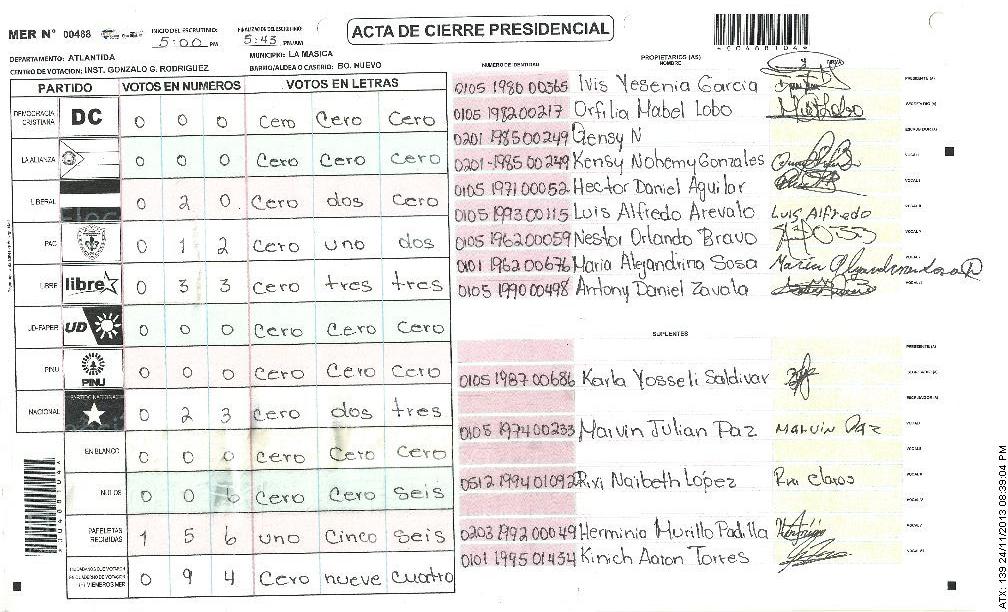 MER N° 00488
INICIO DEL ESCRUTINIO: 5:00 PM
5:43 PM/AM
ACTA DE CIERRE PRESIDENCIAL
DEPARTAMENTO: ATLANTIDA
MUNICIPIO: LA MASICA
CENTRO DE VOTACION: INST. GONZALO G. RODRIGUEZ
BARRIO/ALDEA O CASERIO: BO. NUEVO
PARTIDO VOTOS EN NUMEROS VOTOS EN LETRAS
DEMOCRACIA CRISTIANA DC 0 0 0 Cero Cero Cero
LA ALIANZA 0 0 0 Cero Cero Cero
LIBERAL 0 2 0 Cero dos Cero
PAC 0 1 2 Cero uno dos
LIBRE libre 0 3 3 Cero tres tres
UD-FAPER UD 0 0 0 Cero Cero Cero
PINU PINU 0 0 0 Cero Cero Cero
NACIONAL PARTIDO NACIONAL 0 2 3 Cero dos tres
EN BLANCO 0 0 0 Cero Cero Cero
NULOS 0 0 6 Cero Cero Seis
PAPELETAS RECIBIDAS 1 5 6 uno Cinco Seis
0 9 4 Cero nueve cuatro
NUMERO DE IDENTIDAD
PROPIETARIOS (AS)
NOMBRE
0105 1980 00365 Ivis Yesenia Garcia
0105 1982 00217 Orfilia Mabel Lobo
0201 1985 00249 Gensy N
0201-1985 00249 Kensy Nohemy Gonzales
0105 1971 00052 Hector Daniel Aguilar
0105 1993 00115 Luis Alfredo Arevalo Luis Alfredo
0105 1962 00059 Nestor Orlando Bravo
0101 1962 00676 Maria Alejandrina Sosa
0105 1990 00498 Antony Daniel Zavala
SUPLENTES
0105 1987 00686 Karla Yosseli Saldivar
0105 1974 00233 Marvin Julian Paz Marvin Paz
0512 1994 01092 Rixi Naibeth López
0203 1992 00049 Herminia Murillo Padilla
0101 1995 01454 Kinich Aaron Torres
ATX: 139 24/11/2013 08:39:04 PM